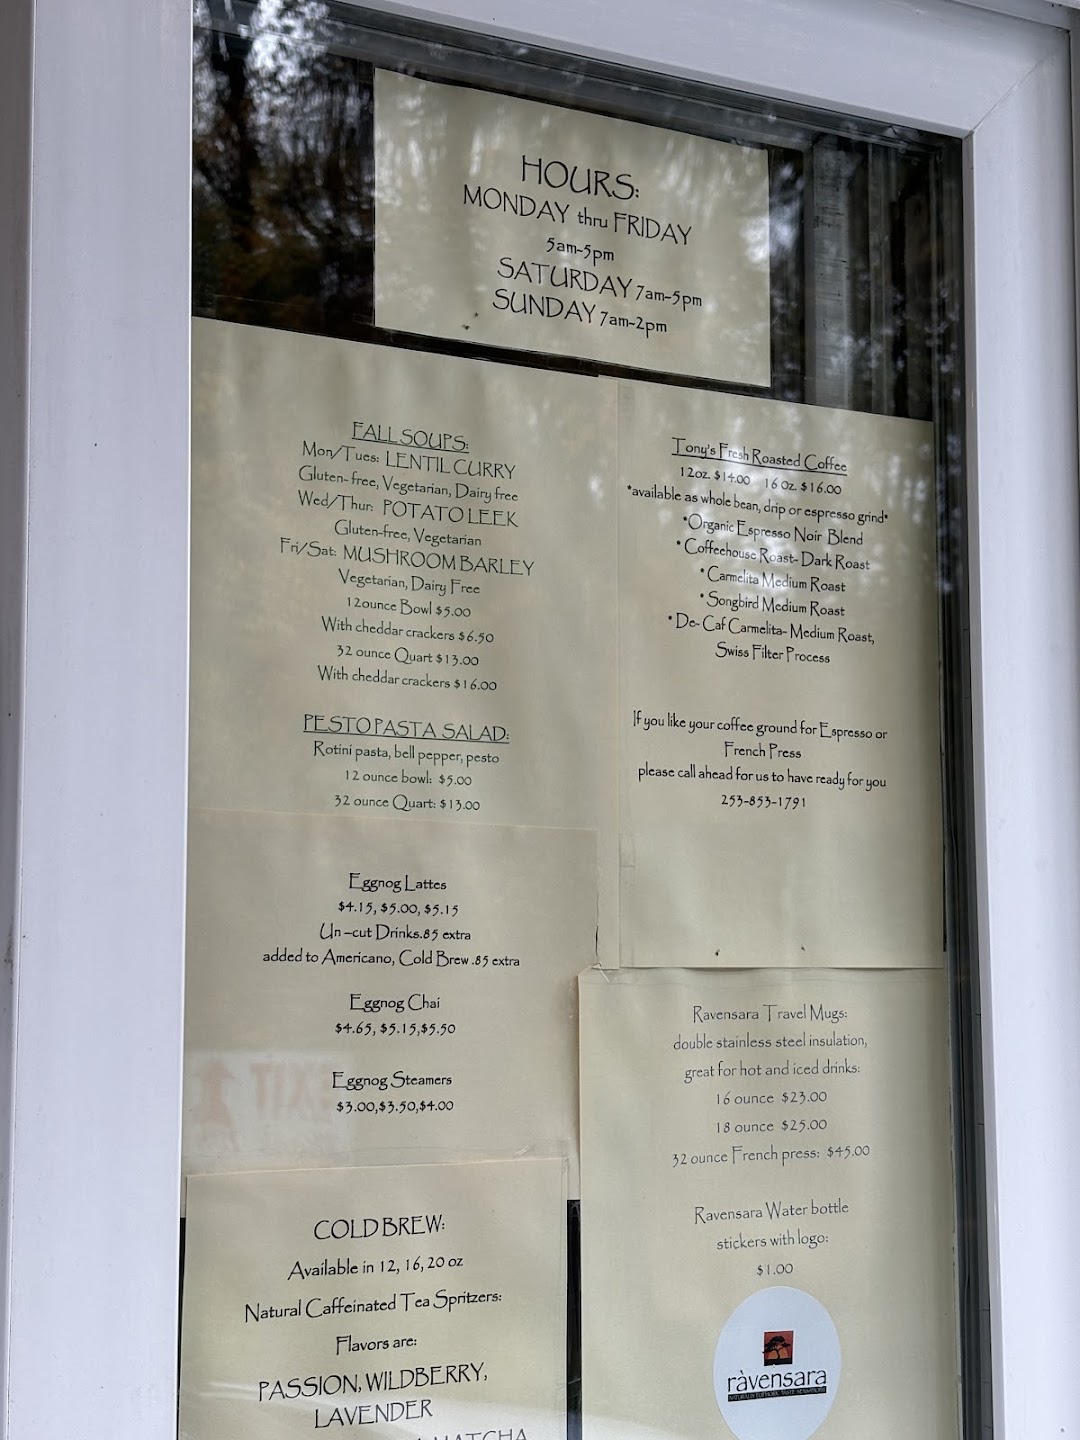 HOURS:
MONDAY thru FRIDAY
5am-5pm
SATURDAY 7am-5pm
SUNDAY 7am-2pm
FALL SOUPS:
Mon/Tues: LENTIL CURRY
Gluten-free, Vegetarian, Dairy free
Wed/Thur: POTATO LEEK
Gluten-free, Vegetarian
Fri/Sat: MUSHROOM BARLEY
Vegetarian, Dairy Free
12ounce Bowl $5.00
With cheddar crackers $6.50
32 ounce Quart $13.00
With cheddar crackers $16.00
PESTO PASTA SALAD:
Rotini pasta, bell pepper, pesto
12 ounce bowl: $5.00
32 ounce Quart: $13.00
Tony's Fresh Roasted Coffee
12oz. $14.00 16 Oz. $16.00
*available as whole bean, drip or espresso grind*
*Organic Espresso Noir Blend
* Coffeehouse Roast- Dark Roast
* Carmelita Medium Roast
* Songbird Medium Roast
* De-Caf Carmelita- Medium Roast,
Swiss Filter Process
If you like your coffee ground for Espresso or
French Press
please call ahead for us to have ready for you
253-853-1791
Eggnog Lattes
$4.15, $5.00, $5.15
Un-cut Drinks.85 extra
added to Americano, Cold Brew .85 extra
Eggnog Chai
$4.65, $5.15,$5.50
Eggnog Steamers
$3.00,$3.50,$4.00
EXIT
Ravensara Travel Mugs:
double stainless steel insulation,
great for hot and iced drinks:
16 ounce $23.00
18 ounce $25.00
32 ounce French press: $45.00
Ravensara Water bottle
stickers with logo:
$1.00
ràvensara
COLD BREW:
Available in 12, 16, 20 oz
Natural Caffeinated Tea Spritzers:
Flavors are:
PASSION, WILDBERRY,
LAVENDER
MATCHA